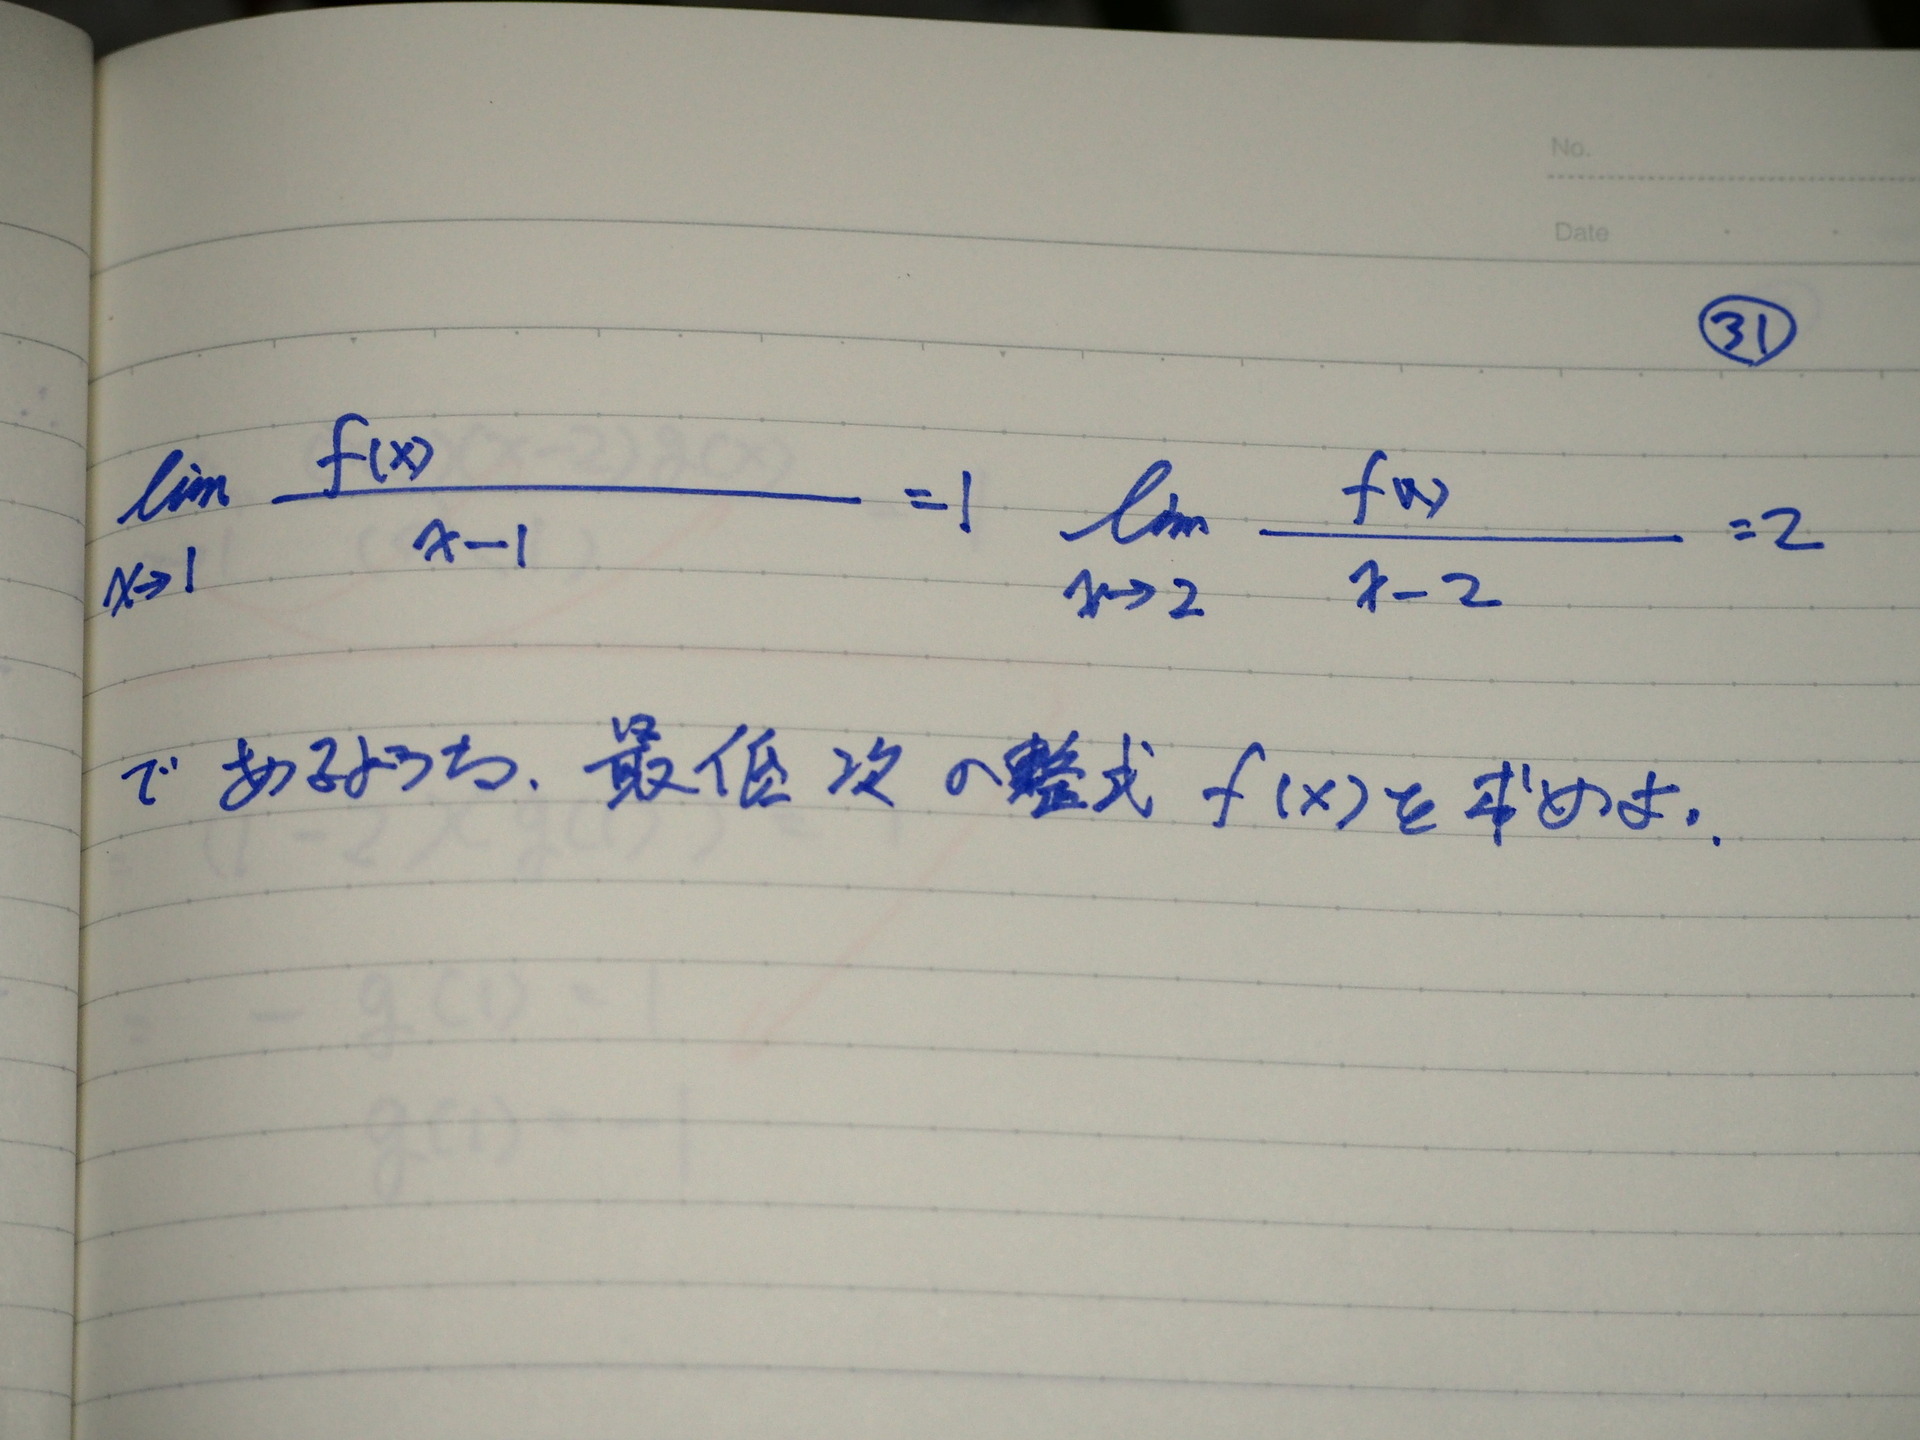 No.
Date
31
lim f(x)/(x-1) =1 lim f(x)/(x-2) =2
x→1 x→2
であるような、最低次の整式 f(x)を求めよ.